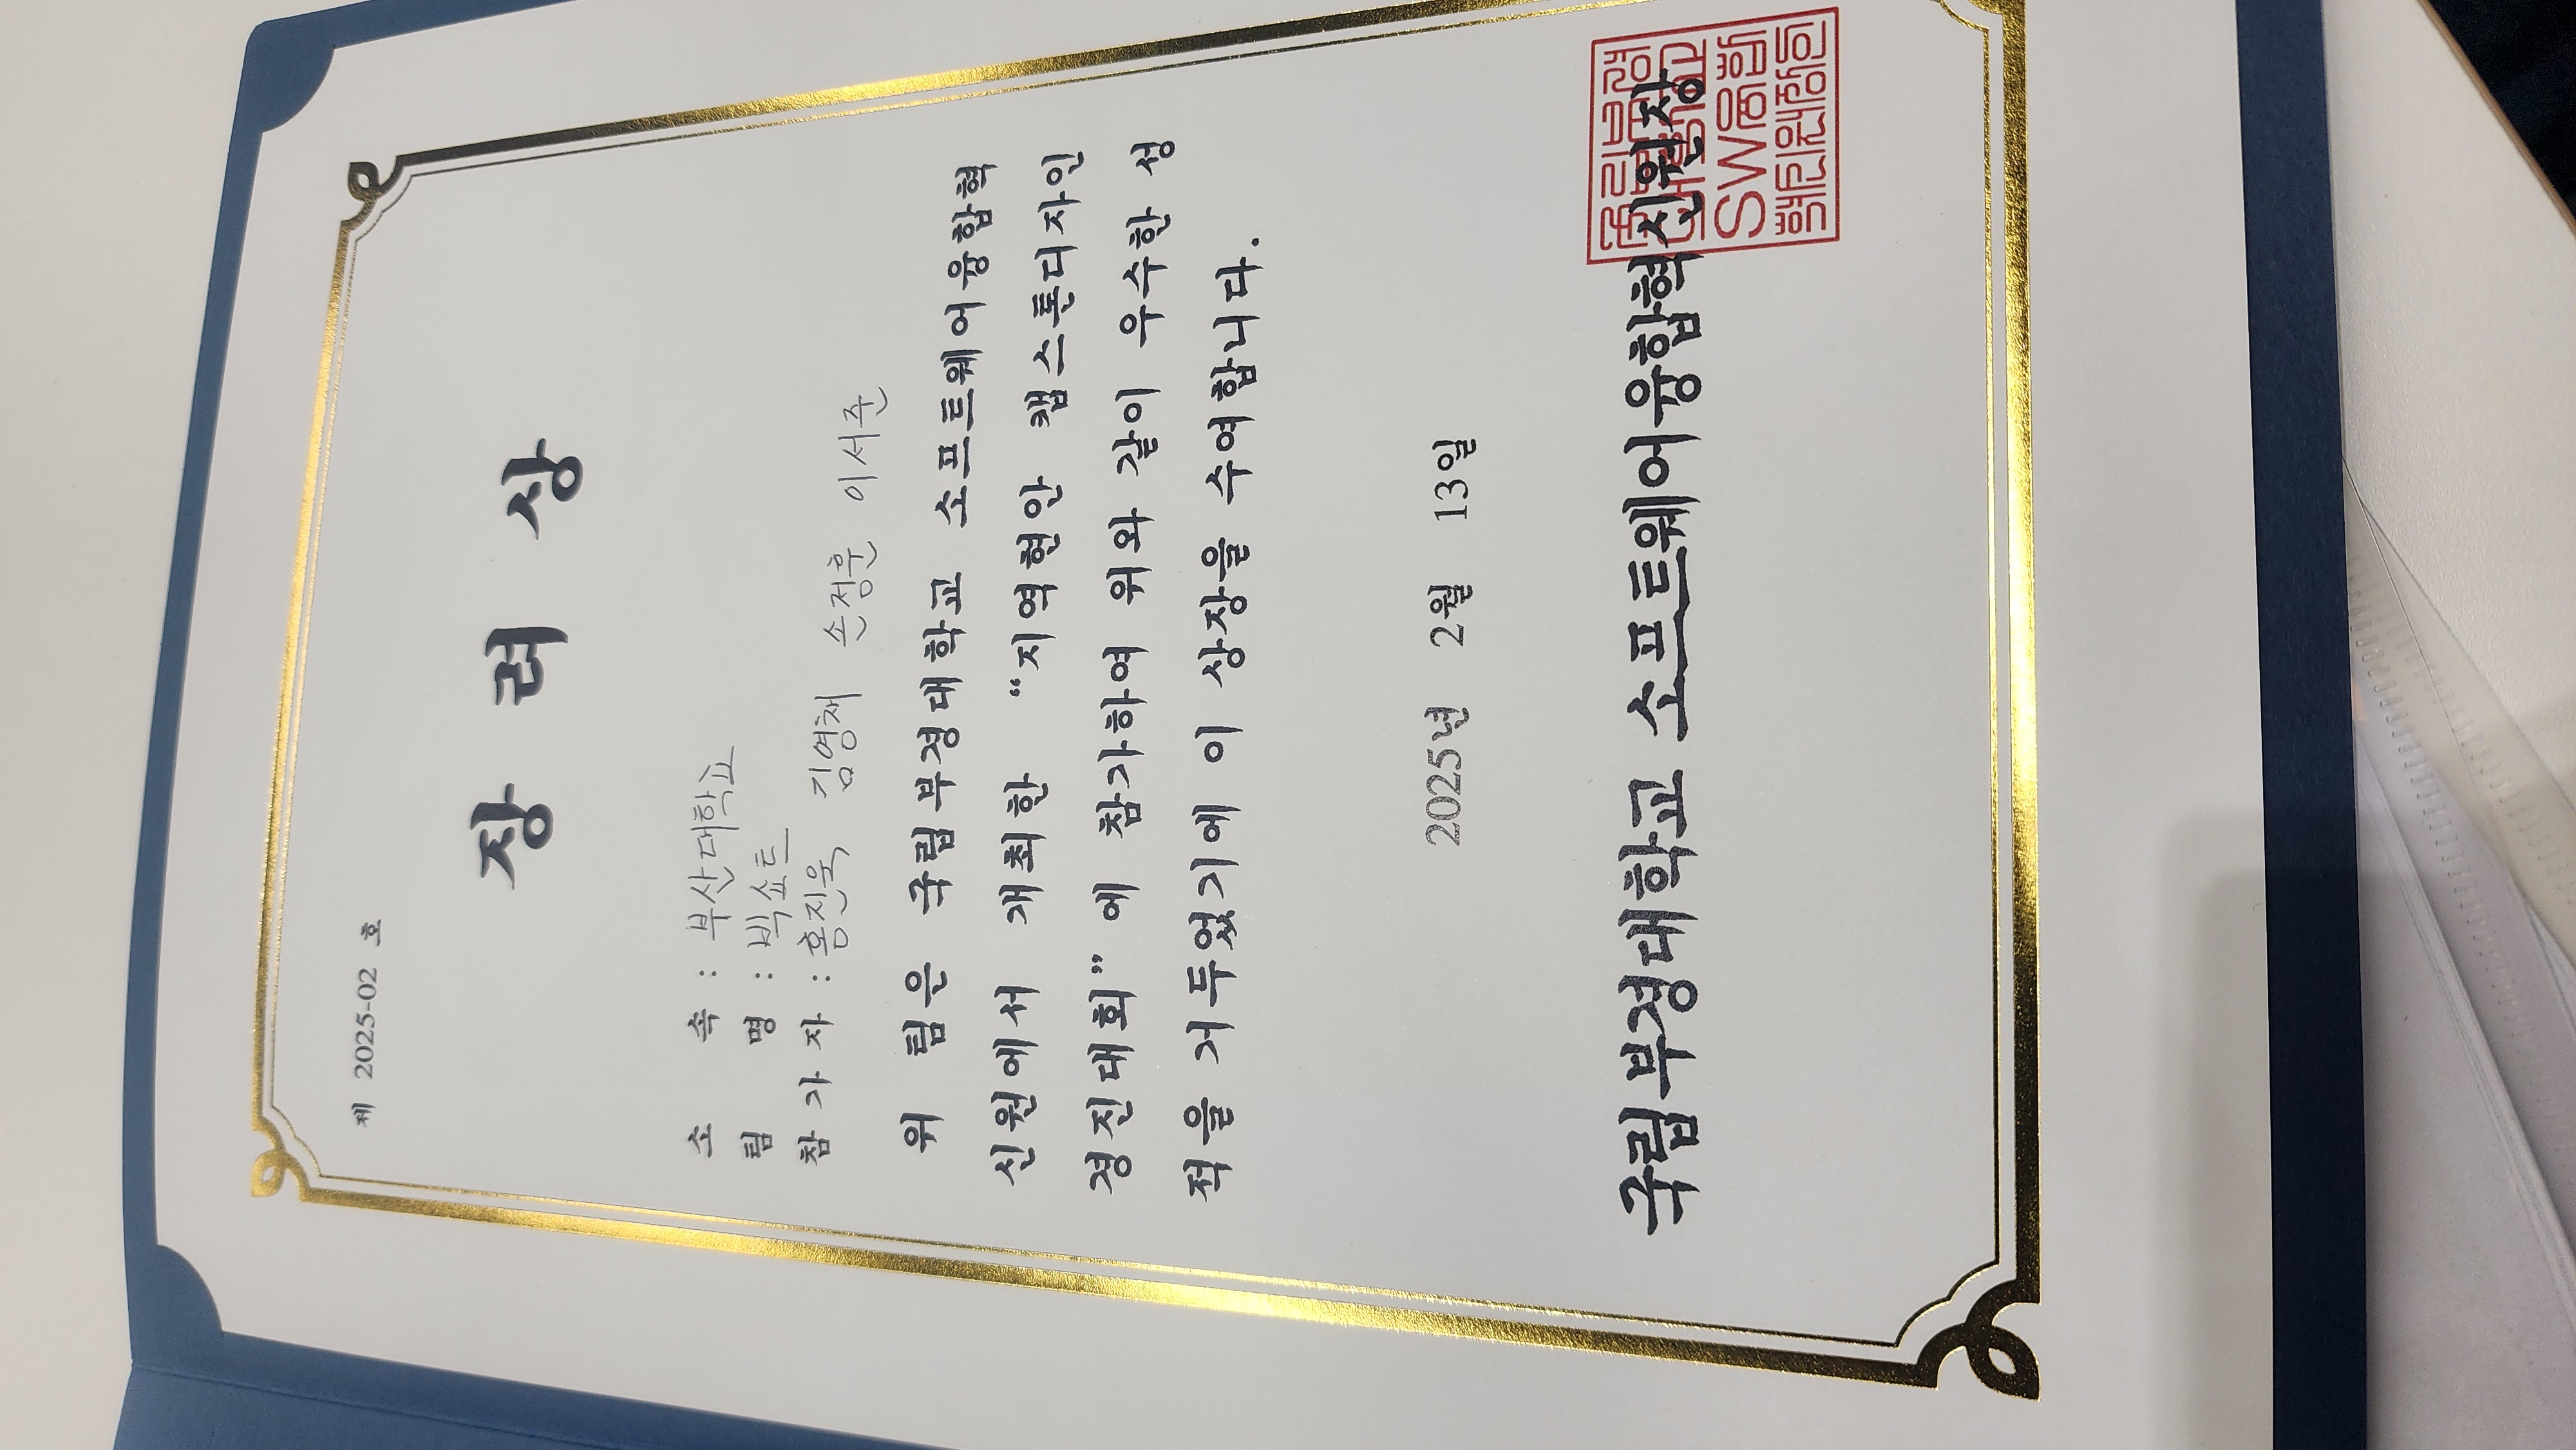 제 2025-02 호
장 려 상
소 속 : 부산대학교
팀 명 : 빅쇼트
참 가 자 : 홍진욱 김영채 손정훈 이서준
위 팀은 국립부경대학교 소프트웨어융합혁
신원에서 개최한 “지역현안 캡스톤디자인
경진대회” 에 참가하여 위와 같이 우수한 성
적을 거두었기에 이 상장을 수여합니다.
2025년 2월 13일
국립부경대학교 소프트웨어융합혁신원장
국립부경
대학교
SW융합
혁신원장인